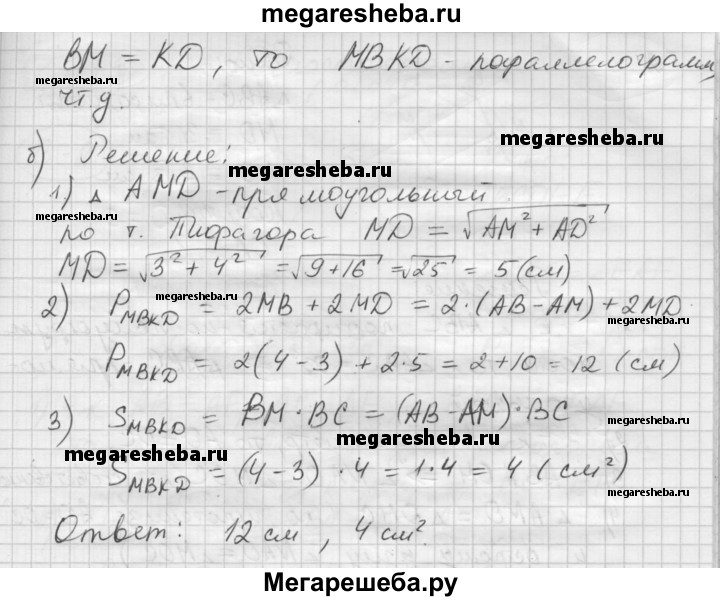 megaresheba.ru
BM = KD, то MBKD - параллелограмм,
megaresheba.ru
ч.т.д.
megaresheba.ru
б) Решение:
megaresheba.ru
1) Δ AMD - прямоугольный
по т. Пифагора MD = √AM² + AD²
MD = √3² + 4² = √9 + 16 = √25 = 5 (см)
megaresheba.ru
2) P_MBKD = 2MB + 2MD = 2·(AB - AM) + 2MD
megaresheba.ru
P_MBKD = 2(4 - 3) + 2·5 = 2 + 10 = 12 (см)
3) S_MBKD = BM · BC = (AB - AM) · BC
megaresheba.ru
megaresheba.ru
S_MBKD = (4 - 3) · 4 = 1·4 = 4 (см²)
megaresheba.ru
Ответ: 12 см, 4 см².
Мегарешеба.ру